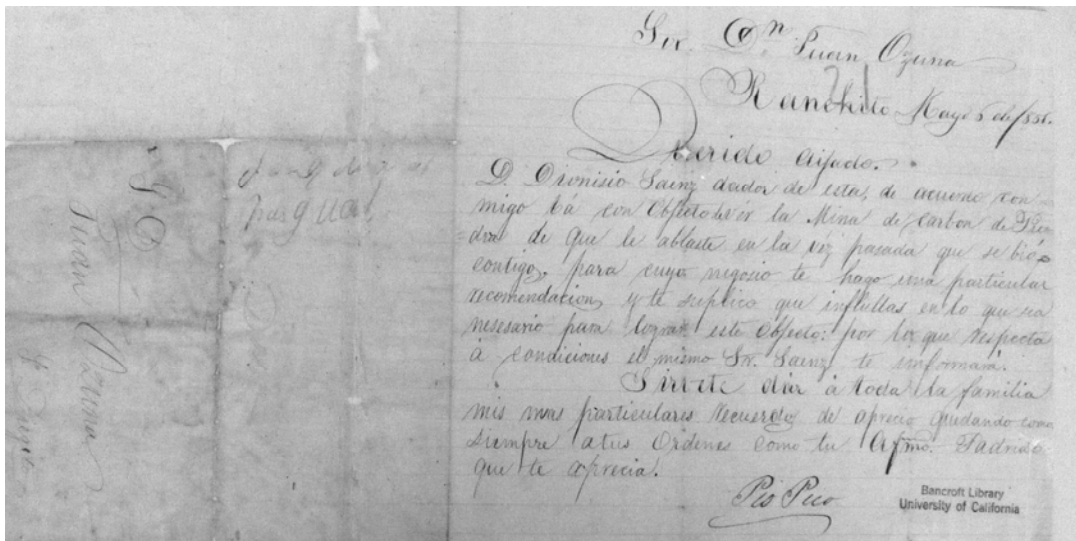 Sor. Dn. Juan Ozuna
Ranchito Mayo 5 de
Querido Aijado.
D. Dionisio Sainz dador de esta, de acuerdo con
migo bá con Objecto de vér la Mina de carbon de Pie
=dra de que le ablaste en la véz pasada que se bió
contigo, para cuyo negocio te hago una particular
recomendacion, y te suplico que influllas en lo que sea
nesesario para lograr este Objecto: por lo que respecta
á condiciones el mismo Sr. Sainz te informará.
Sirvete dar á toda la familia
mis mas particulares Recuerdo de aprecio quedando como
siempre a tus Ordenes como tu Afmo. Padrino
que te aprecia.
Pio Pico
Bancroft Library
University of California
S. D.
Juan Ozuna
Sn. Diego